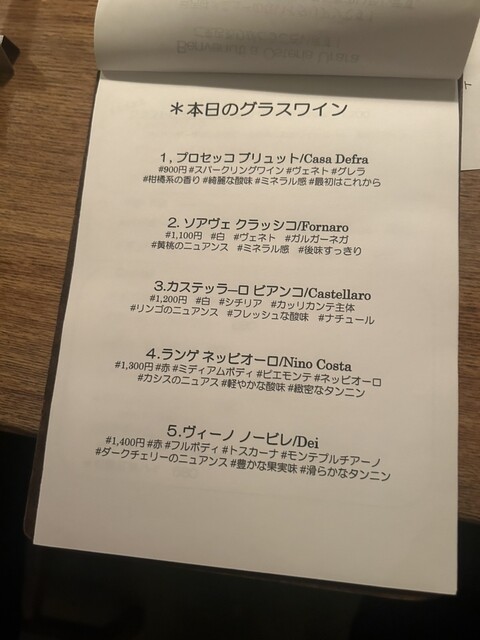 ＊本日のグラスワイン
1, プロセッコ ブリュット/Casa Defra
#900円 #スパークリングワイン #ヴェネト #グレラ
#柑橘系の香り #綺麗な酸味 #ミネラル感 #最初はこれから
2. ソアヴェ クラッシコ/Fornaro
#1,100円 #白 #ヴェネト #ガルガーネガ
#黄桃のニュアンス #ミネラル感 #後味すっきり
3.カステッラーロ ビアンコ/Castellaro
#1,200円 #白 #シチリア #カッリカンテ主体
#リンゴのニュアンス #フレッシュな酸味 #ナチュール
4.ランゲ ネッビオーロ/Nino Costa
#1,300円 #赤 #ミディアムボディ #ピエモンテ #ネッビオーロ
#カシスのニュアス #軽やかな酸味 #緻密なタンニン
5.ヴィーノ ノービレ/Dei
#1,400円 #赤 #フルボディ #トスカーナ #モンテプルチアーノ
#ダークチェリーのニュアンス #豊かな果実味 #滑らかなタンニン